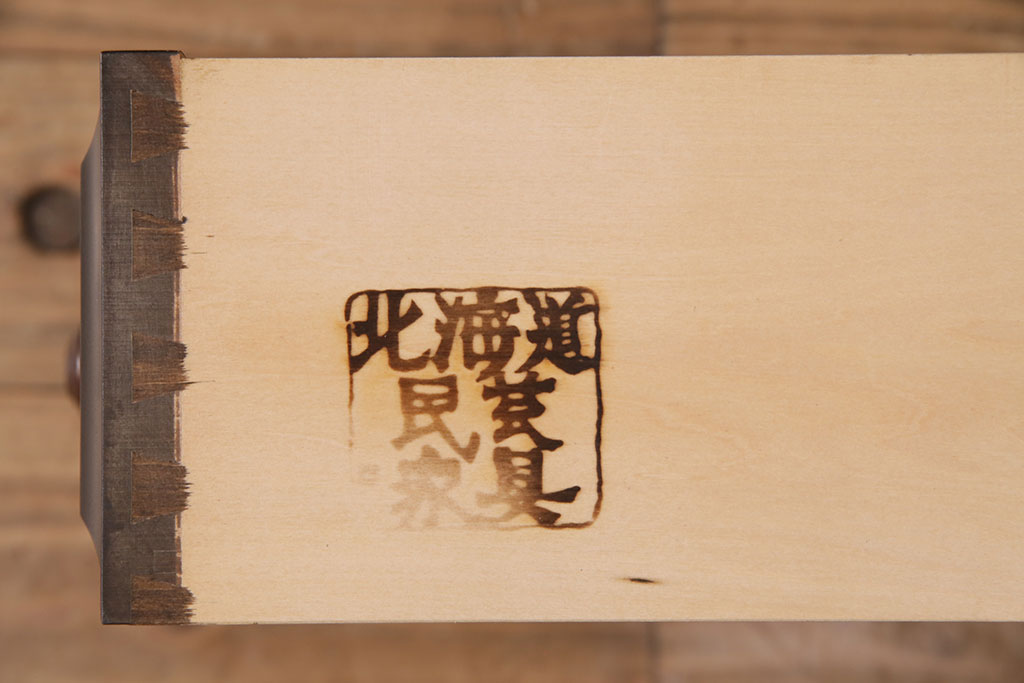 北海道
民芸
家具